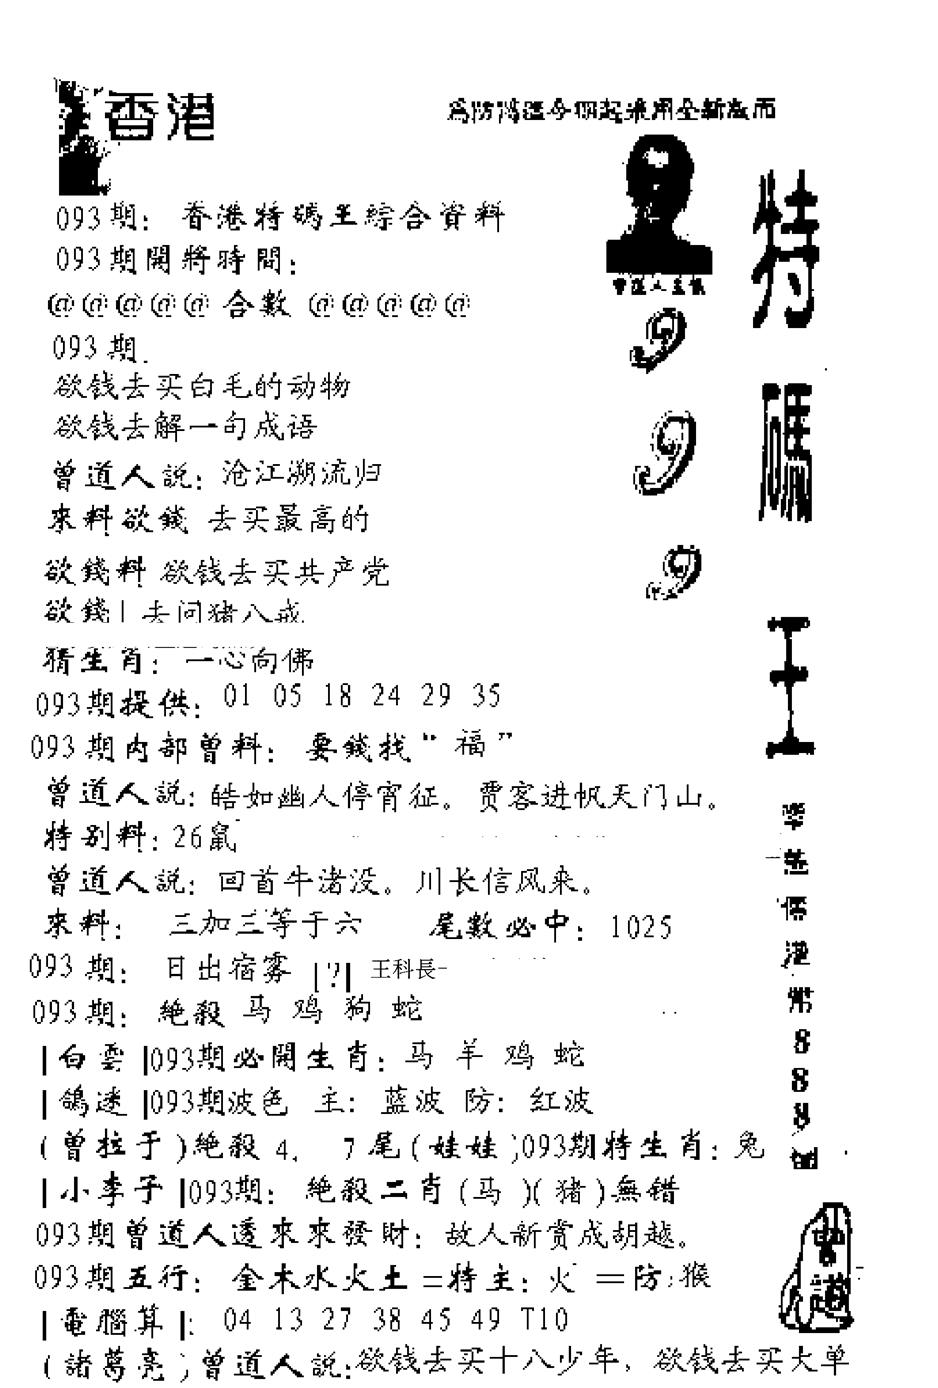 香港
為防偽造今期起采用全新版面
093期：香港特碼王綜合資料
093期開將時間：
@@@@@合數@@@@@
093期.
欲钱去买白毛的动物
欲钱去解一句成语
曾道人説：沧江溯流归
來料欲錢 去买最高的
欲錢料 欲钱去买共产党
欲錢| 去问猪八戒
猜生肖：一心向佛
093期提供：01 05 18 24 29 35
093期内部曾料：要錢找“福”
曾道人説：皓如幽人停宵征。贾客进帆天门山。
特别料：26鼠
曾道人説：回首牛渚没。川长信风来。
來料： 三加三等于六 尾數必中：1025
093期：日出宿雾 |?| 王科長
093期：絶殺 马 鸡 狗 蛇
|白雲|093期必開生肖：马 羊 鸡 蛇
|鴿迷|093期波色 主：蓝波 防：红波
(曾拉于)絶殺 4. 7尾(娃娃)093期特生肖：兔
|小李子|093期：絶殺二肖(马)(猪)無错
093期曾道人透來來發財：故人新赏成胡越。
093期五行：金木水火土=特主：火=防:猴
|電腦算|：04 13 27 38 45 49 T10
(諸葛亮)曾道人説:欲钱去买十八少年，欲钱去买大单
特碼王
999
888
曾道